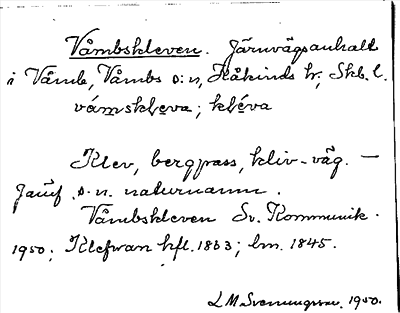 Våmbskleven. Järnvägsanhalt
i Våmb, Våmbs s:n, Kåkinds hr, Skb. l.
våmskleva; kléva
Klev, bergpass, kliv-väg. —
Jämf. s. n. naturnamn.
Våmbskleven Sv. Kommunik.
1950; Klefwan hfl. 1863; lm. 1845.
L M Svenungsson. 1950.